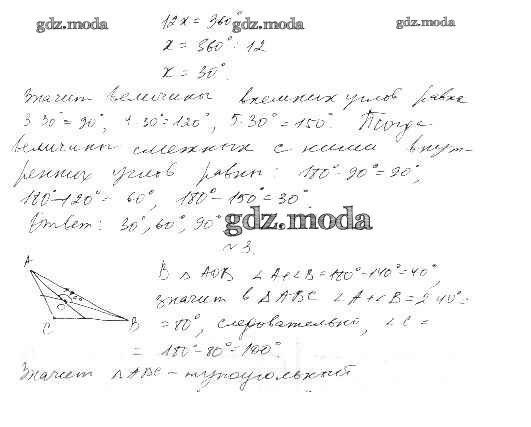 12x = 360°
gdz.moda
gdz.moda
gdz.moda
x = 360° : 12
x = 30°.
Значит величины внешних углов равна
3·30° = 90°, 4·30° = 120°, 5·30° = 150°. Тогда
величины смежных с ними внут-
ренних углов равны: 180° - 90° = 90°,
180° - 120° = 60°, 180° - 150° = 30°.
Ответ: 30°, 60°, 90°
gdz.moda
№3.
A
O
C
B
В △AOB ∠A+∠B = 180° - 140° = 40°,
значит в △ABC ∠A+∠B = 2·40° =
= 80°, следовательно, ∠C =
= 180° - 80° = 100°.
Значит △ABC - тупоугольный